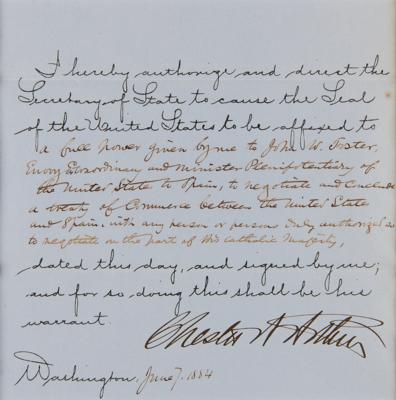 I hereby authorize and direct the
Secretary of State to cause the Seal
of the United States to be affixed to
a full power given by me to John W. Foster,
Envoy Extraordinary and Minister Plenipotentiary of
the United State to Spain, to negotiate and conclude
a treaty of Commerce between the United State
and Spain, with any person or persons duly authorized
to negotiate on the part of His Catholic Majesty,
dated this day, and signed by me;
and for so doing this shall be his
warrant.
Chester A Arthur
Washington, June 7. 1884